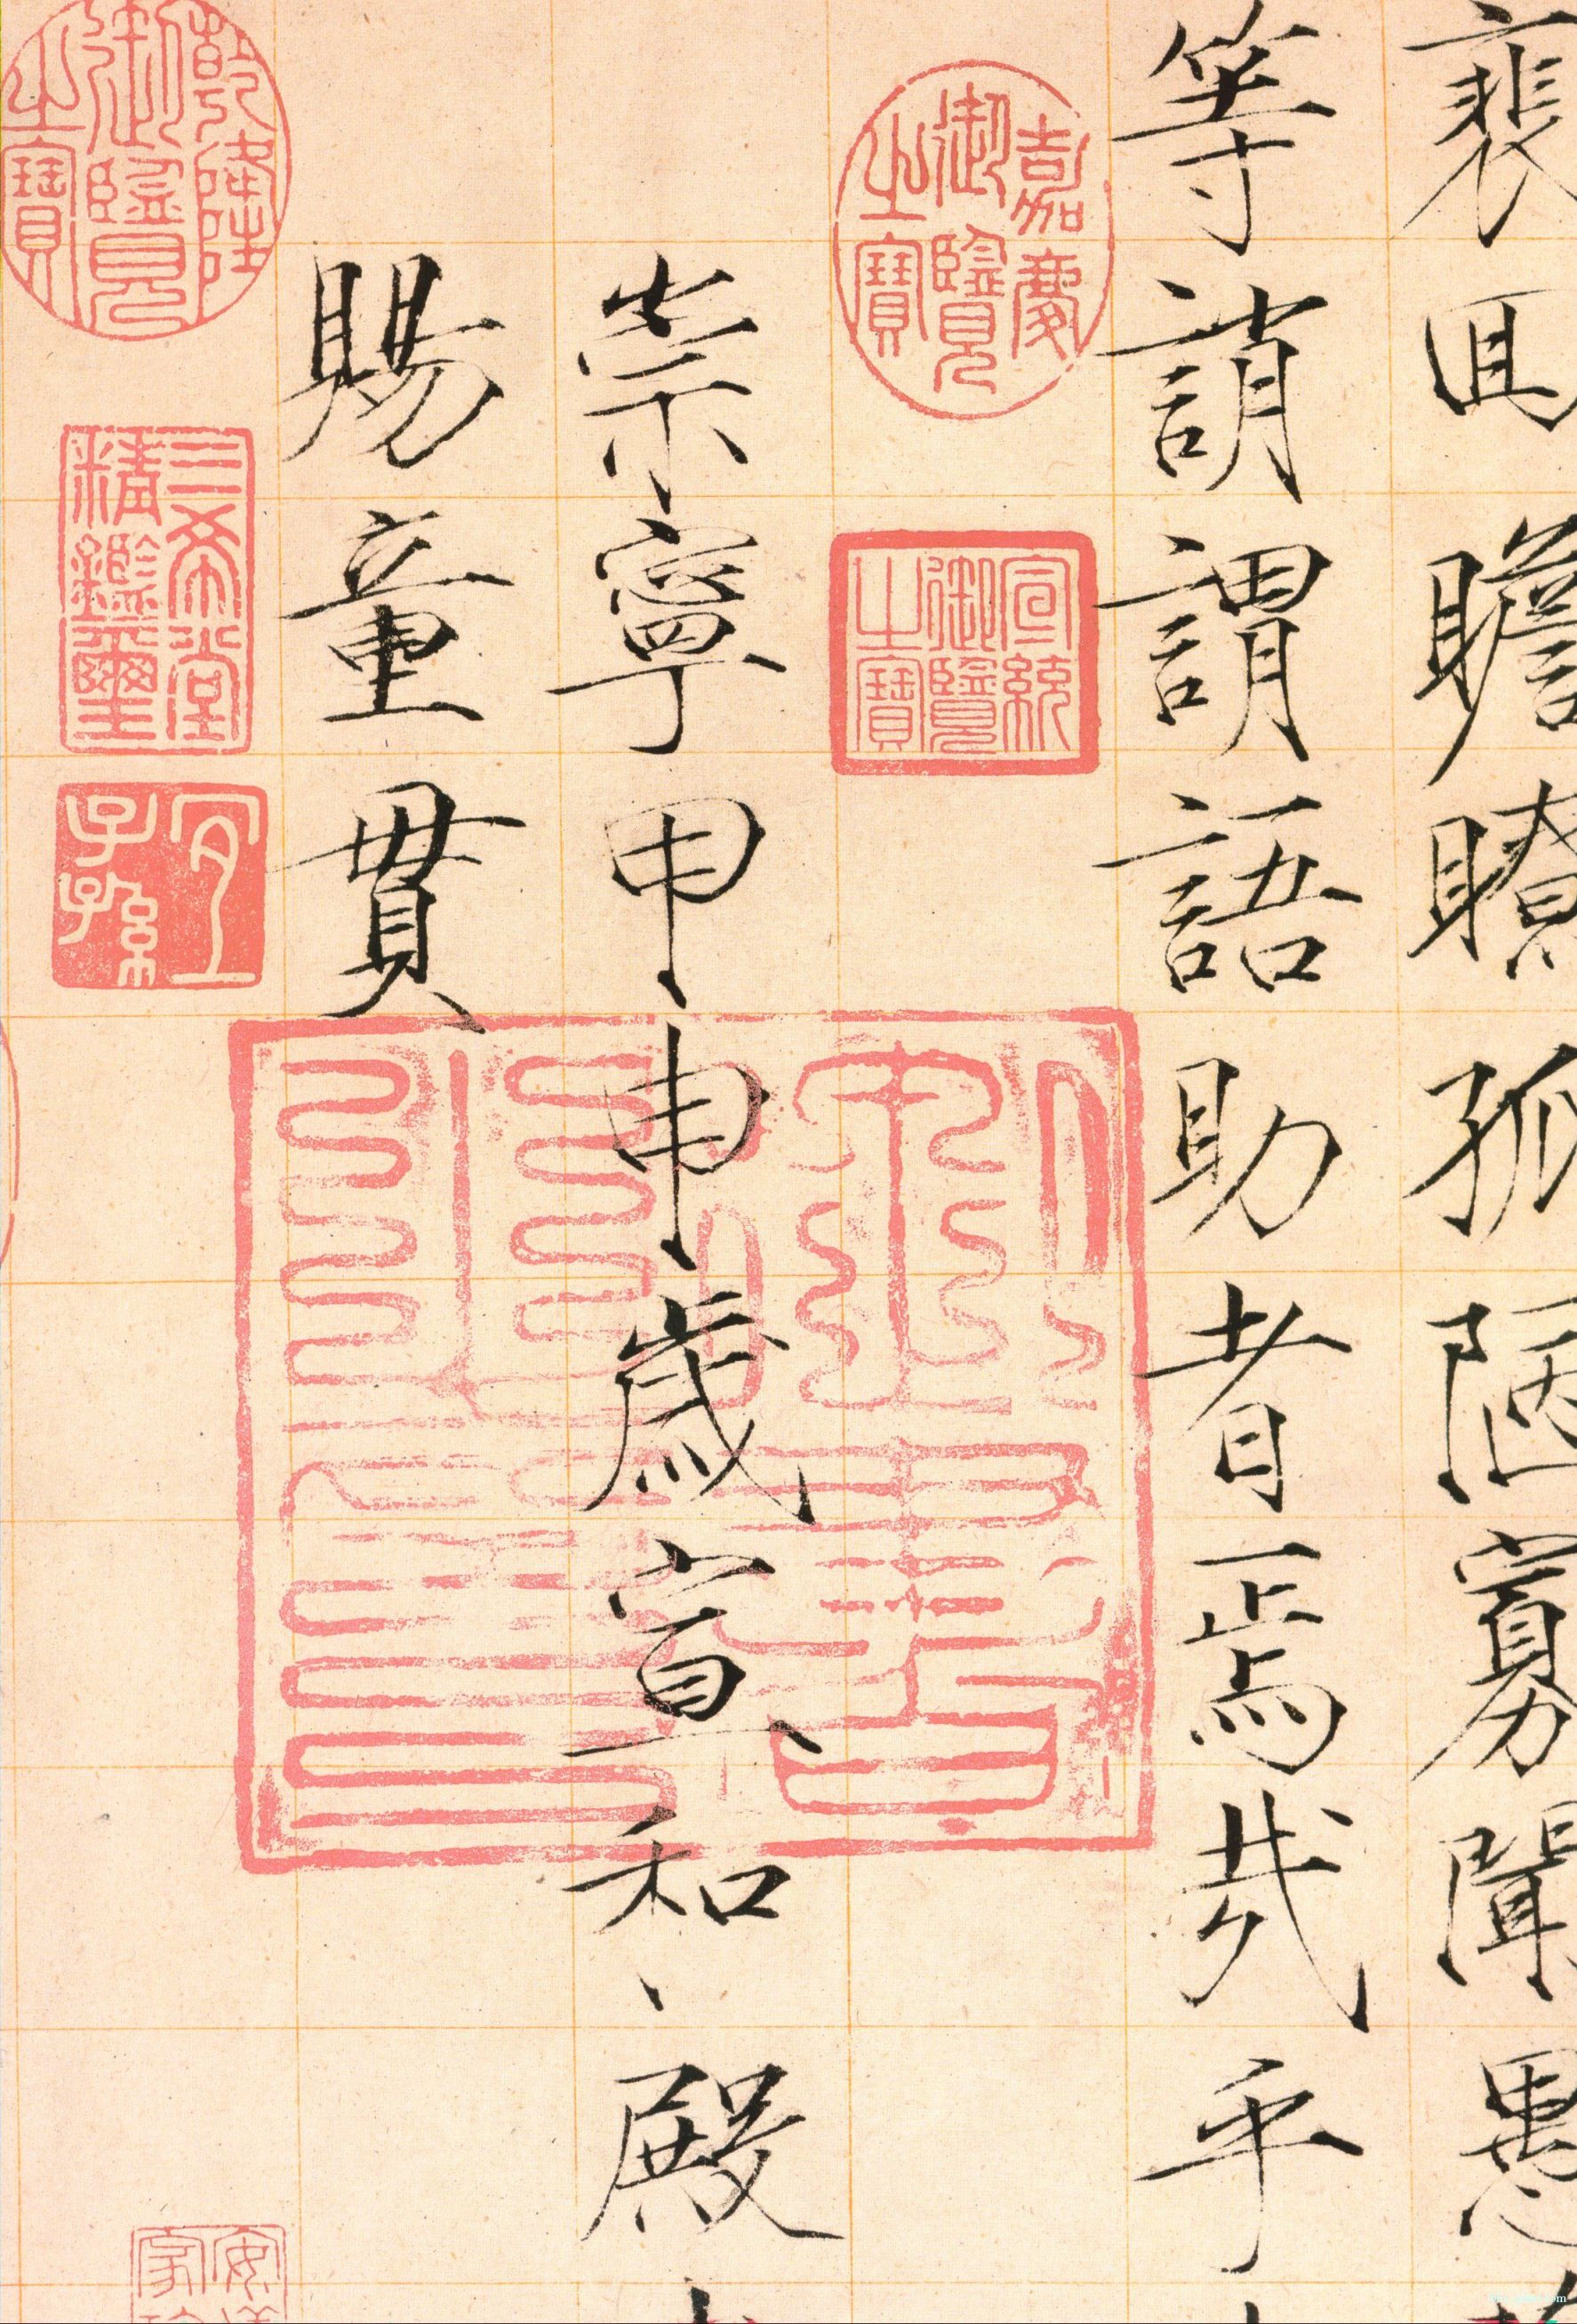 裴回瞻眺孤陋寡聞愚
等誚謂語助者焉哉乎
崇寧甲申歲宣和殿
賜童貫
嘉慶御覽之寶
宣統御覽之寶
乾隆御覽之寶
三希堂精鑑璽
宜子孫
安儀
家珍